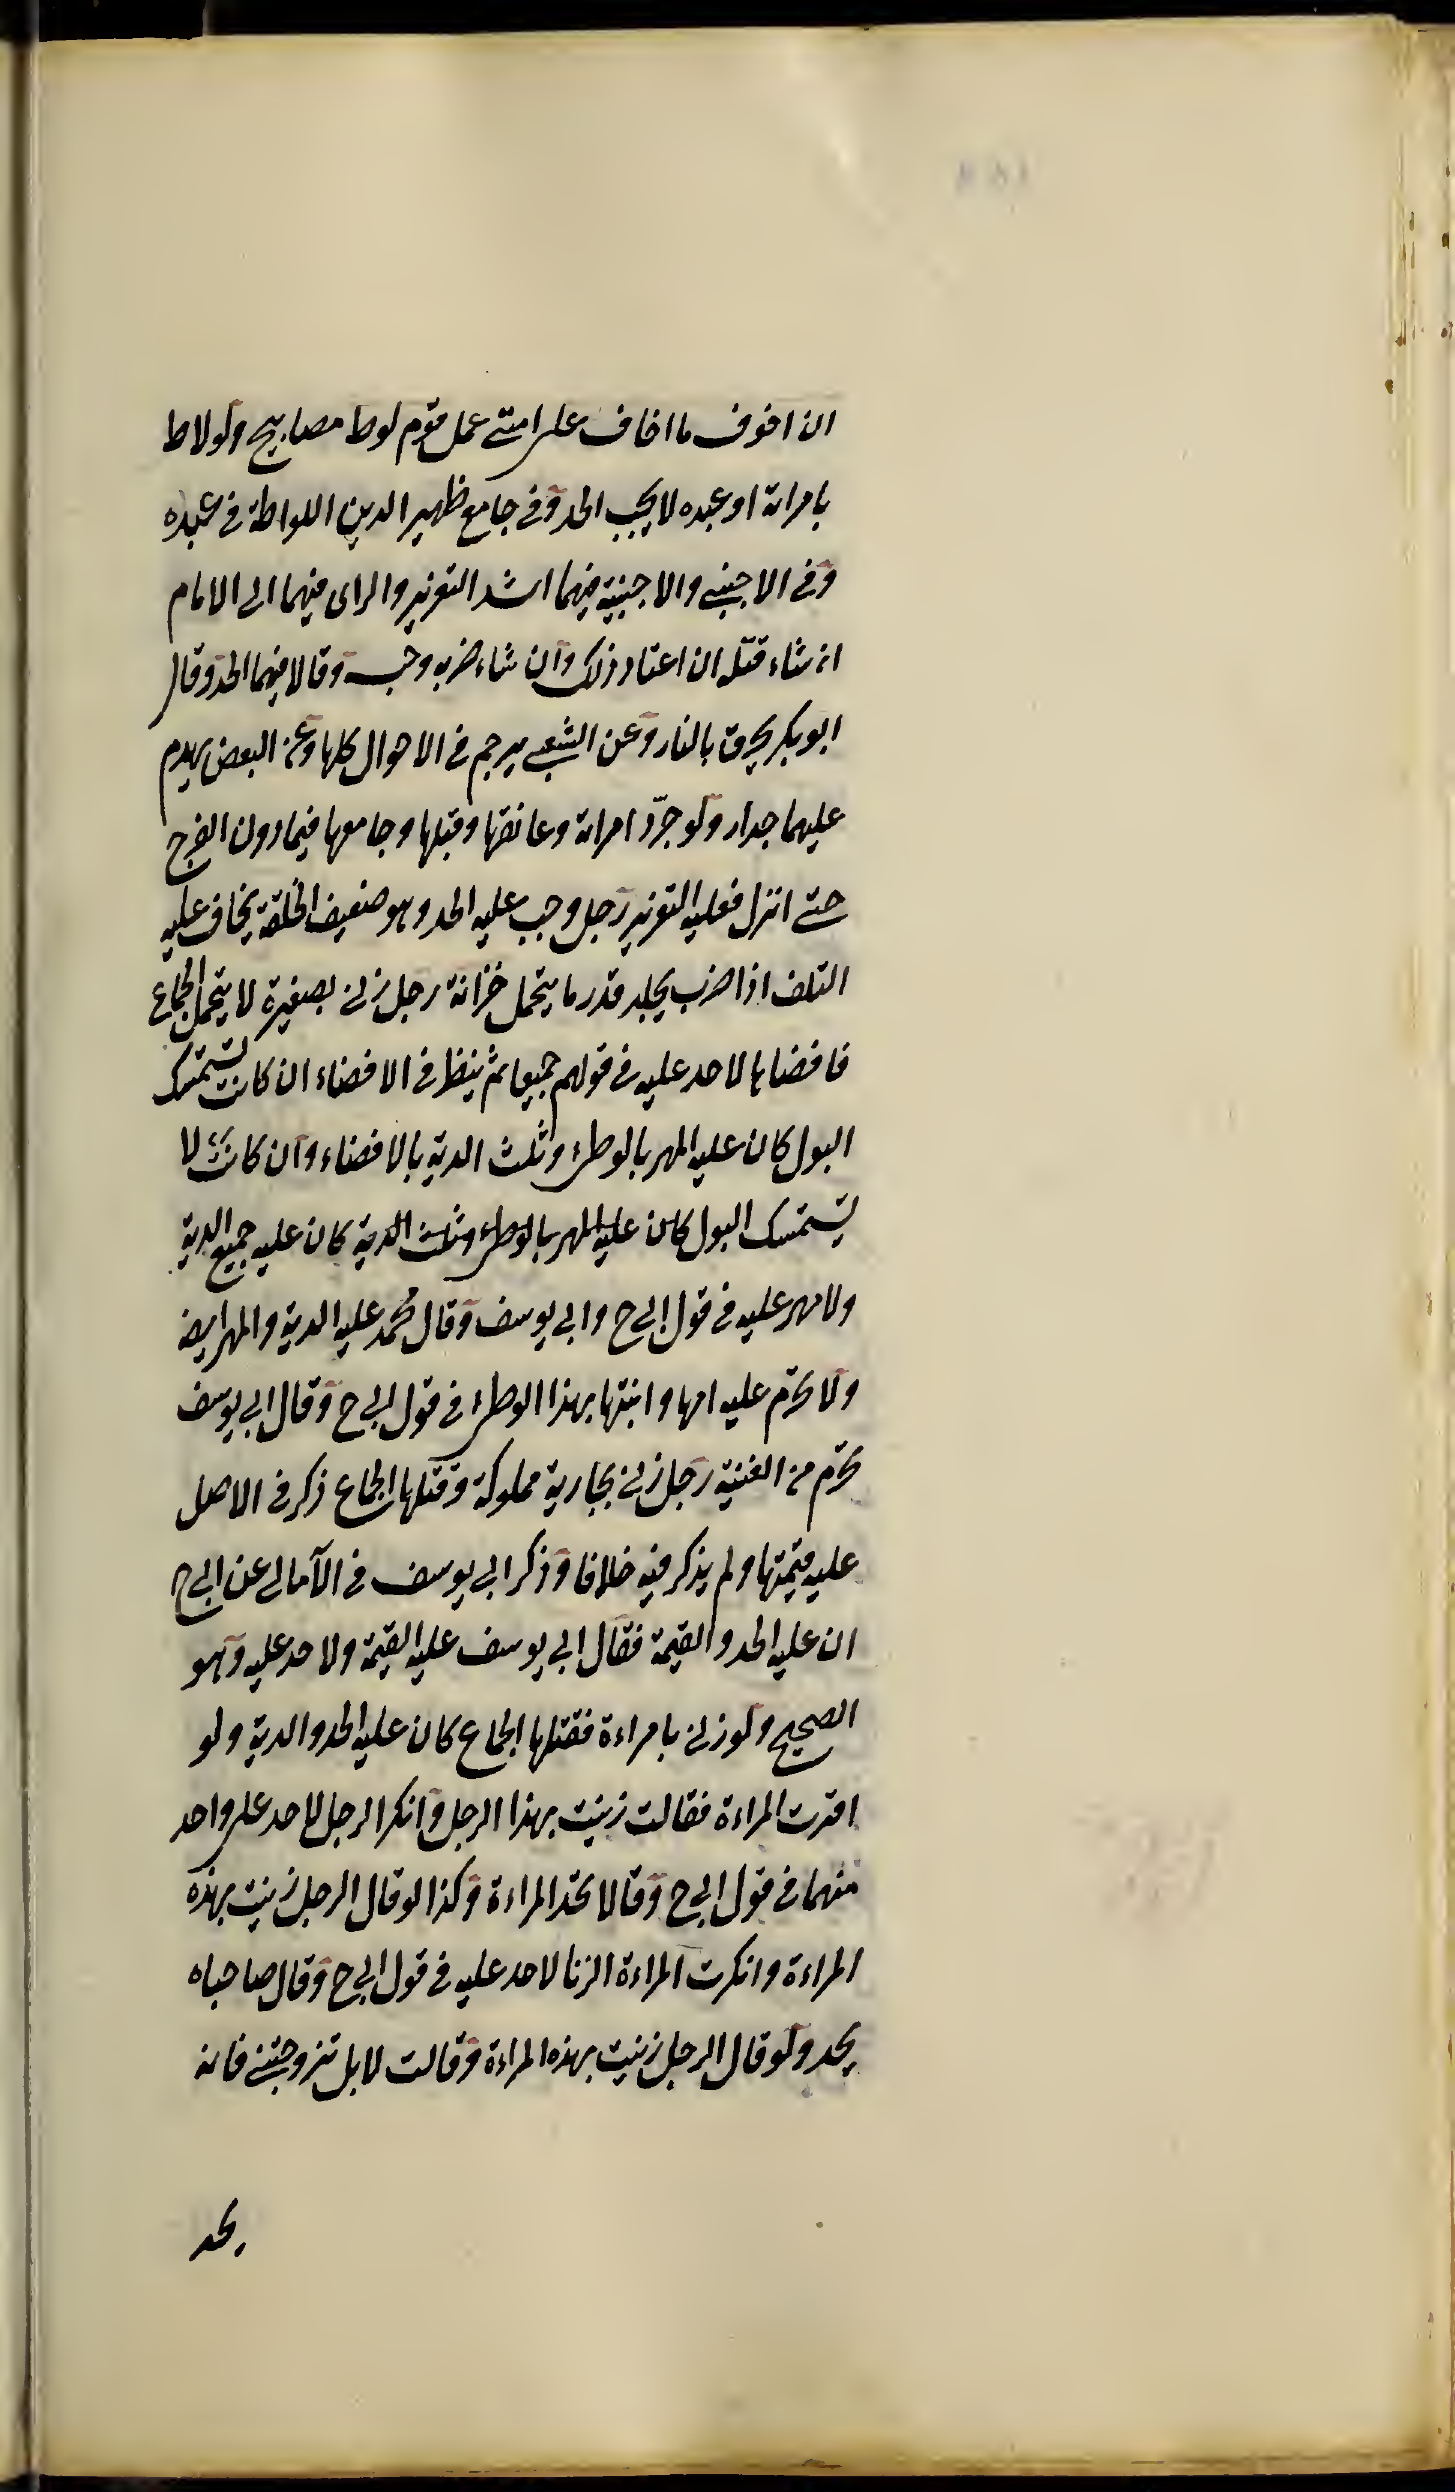 ان اخوف ما اخاف على امتى عمل قوم لوط مصابيح ولو لاط
بامراته او عبده لا يجب الحد وفى جامع ظهير الدين اللواطة فى عبده
وفى الاجنبى والاجنبية فيهما اشد التعزير والراى فيهما الى الامام
ان شاء قتله ان اعتاد ذلك وان شاء ضربه وحبسه وقالا فيهما الحد وقال
ابو بكر يحرق بالنار وعن الشعبى يرجم فى الاحوال كلها وعن البعض يهدم
عليهما جدار ولو جرّد امراة وعانقها وقبلها وجامعها فيما دون الفرج
حتى انزل فعليه التعزير رجل وجب عليه الحد وهو ضعيف الخلقة يخاف عليه
التلف اذا ضرب يجلد قدر ما يتحمل خزانة رجل زنى بصغيرة لا يتحمل الجماع
فافضاها لا حد عليه فى قولهم جميعا ثم ينظر فى الافضاء ان كانت تستمسك
البول كان عليه المهر بالوطئ وثلث الدية بالافضاء وان كانت لا
يستمسك البول كان عليه المهر بالوطئ وثلث الدية كان عليه جميع الدية
ولا مهر عليه فى قول ابى ح وابى يوسف وقال محمد عليه الدية والمهر ايضا
ولا يحرّم عليه امها وابنتها بهذا الوطئ فى قول ابى ح وقال ابى يوسف
يحرّم من الغنية رجل زنى بجارية مملوكة وقتلها الجماع ذكر فى الاصل
عليه قيمتها ولم يذكر فيه خلافا وذكر ابى يوسف فى الآمالى عن ابى ح
ان عليه الحد والقيمة فقال ابى يوسف عليه القيمة ولا حد عليه وهو
الصحيح ولو زنى بامراءة فقتلها الجماع كان عليه الحد والدية ولو
اقرت المراءة فقالت زنيت بهذا الرجل وانكر الرجل لا حد على واحد
منهما فى قول ابى ح وقالا يحد المراءة وكذا لو قال الرجل زنيت بهذه
المراءة وانكرت المراءة الزنا لا حد عليه فى قول ابى ح وقال صاحباه
يحد ولو قال الرجل زنيت بهذه المراءة وقالت لا بل تزوجتنى فانه
يحد